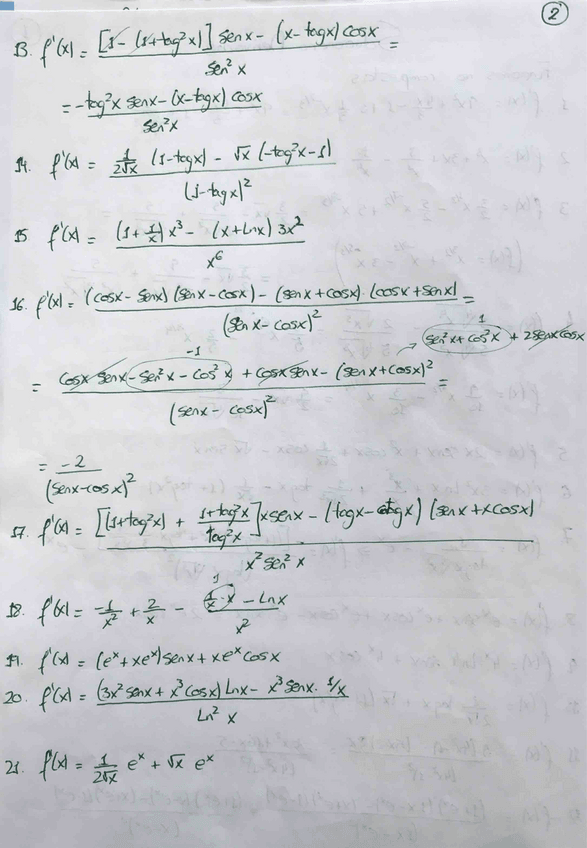 2
13. f'(x) = [1 - (1+tag²x)] senx - (x-tagx) cosx / sen²x =
= -tag²x senx - (x-tagx) cosx / sen²x
14. f'(x) = 1/2√x (1-tagx) - √x (-tag²x-1) / (1-tagx)²
15 f'(x) = (1+1/x) x³ - (x+Lnx) 3x² / x⁶
16. f'(x) = (cosx - senx) (senx - cosx) - (senx + cosx) · (cosx + senx) / (senx - cosx)² =
1
sen²x + cos²x + 2senxcosx
-1
= cosx senx - sen²x - cos²x + cosx senx - (senx + cosx)² / (senx - cosx)² =
= -2 / (senx-cosx)²
17. f'(x) = [(1+tag²x) + 1+tag²x / tag²x] x senx - (tagx - cotagx) (senx + x cosx) / x² sen²x
1
18. f'(x) = -1/x² + 2/x - 1/x · x - Lnx / x²
19. f'(x) = (eˣ + xeˣ) senx + xeˣ cosx
20. f'(x) = (3x² senx + x³ cosx) Lnx - x³ senx · 1/x / Ln² x
21. f'(x) = 1/2√x eˣ + √x eˣ